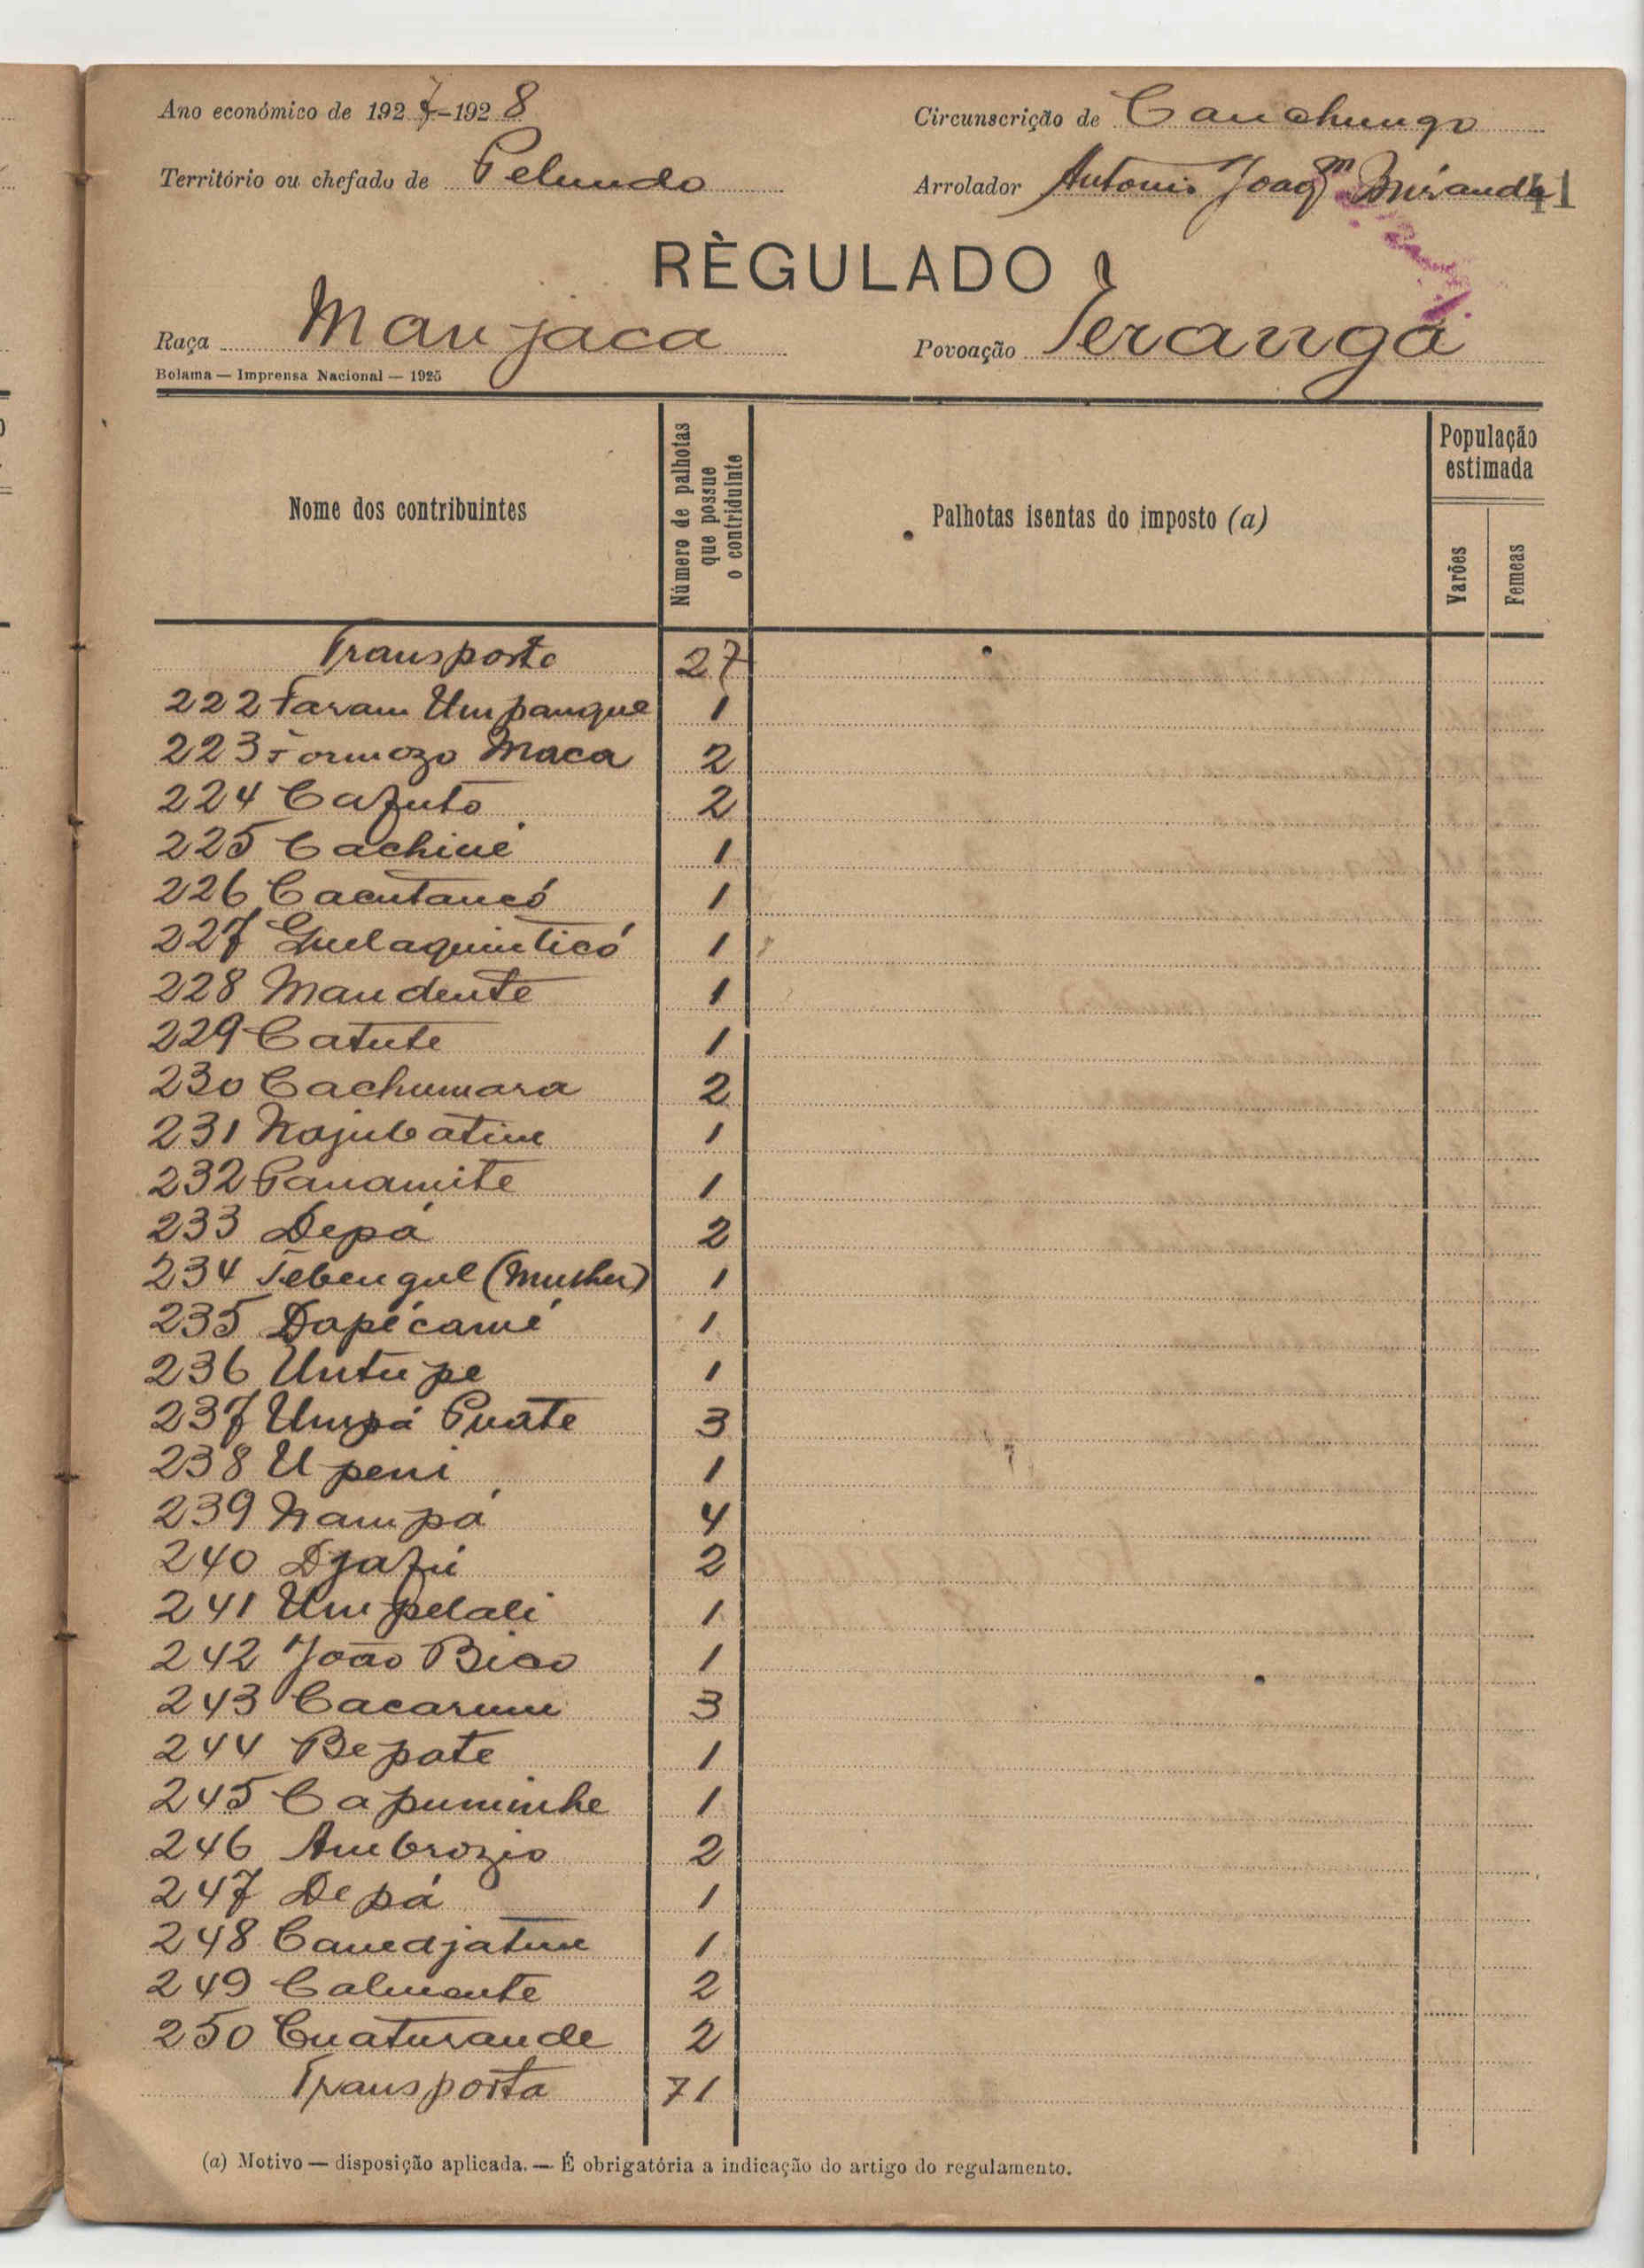 Ano económico de 1927-1928
Circunscrição de Canchungo
Território ou chefado de Pelundo
Arrolador Antonio Joaqm Miranda
41
RÈGULADO
Raça Manjaca
Povoação Teranga
Bolama — Imprensa Nacional — 1925
Nome dos contribuintes
Número de palhotas
que possue
o contriduinte
Palhotas isentas do imposto (a)
População
estimada
Varões
Femeas
Transporte 27
222 Faram Umpangue 1
223 Formozo Maca 2
224 Cafuto 2
225 Cachiné 1
226 Cacutancó 1
227 Guelaquinticó 1
228 Mandente 1
229 Catute 1
230 Cachumara 2
231 Najubatine 1
232 Panamite 1
233 Depá 2
234 Tebengul (Mulher) 1
235 Dapécamé 1
236 Untupe 1
237 Umpá Puate 3
238 Upeni 1
239 Nampá 4
240 Djafú 2
241 Umpelali 1
242 João Bico 1
243 Cacarume 3
244 Bepate 1
245 Capuminhe 1
246 Ambrozio 2
247 Depá 1
248 Canedjatime 1
249 Calmante 2
250 Cuaturande 2
Transporta 71
(a) Motivo — disposição aplicada. — É obrigatória a indicação do artigo do regulamento.